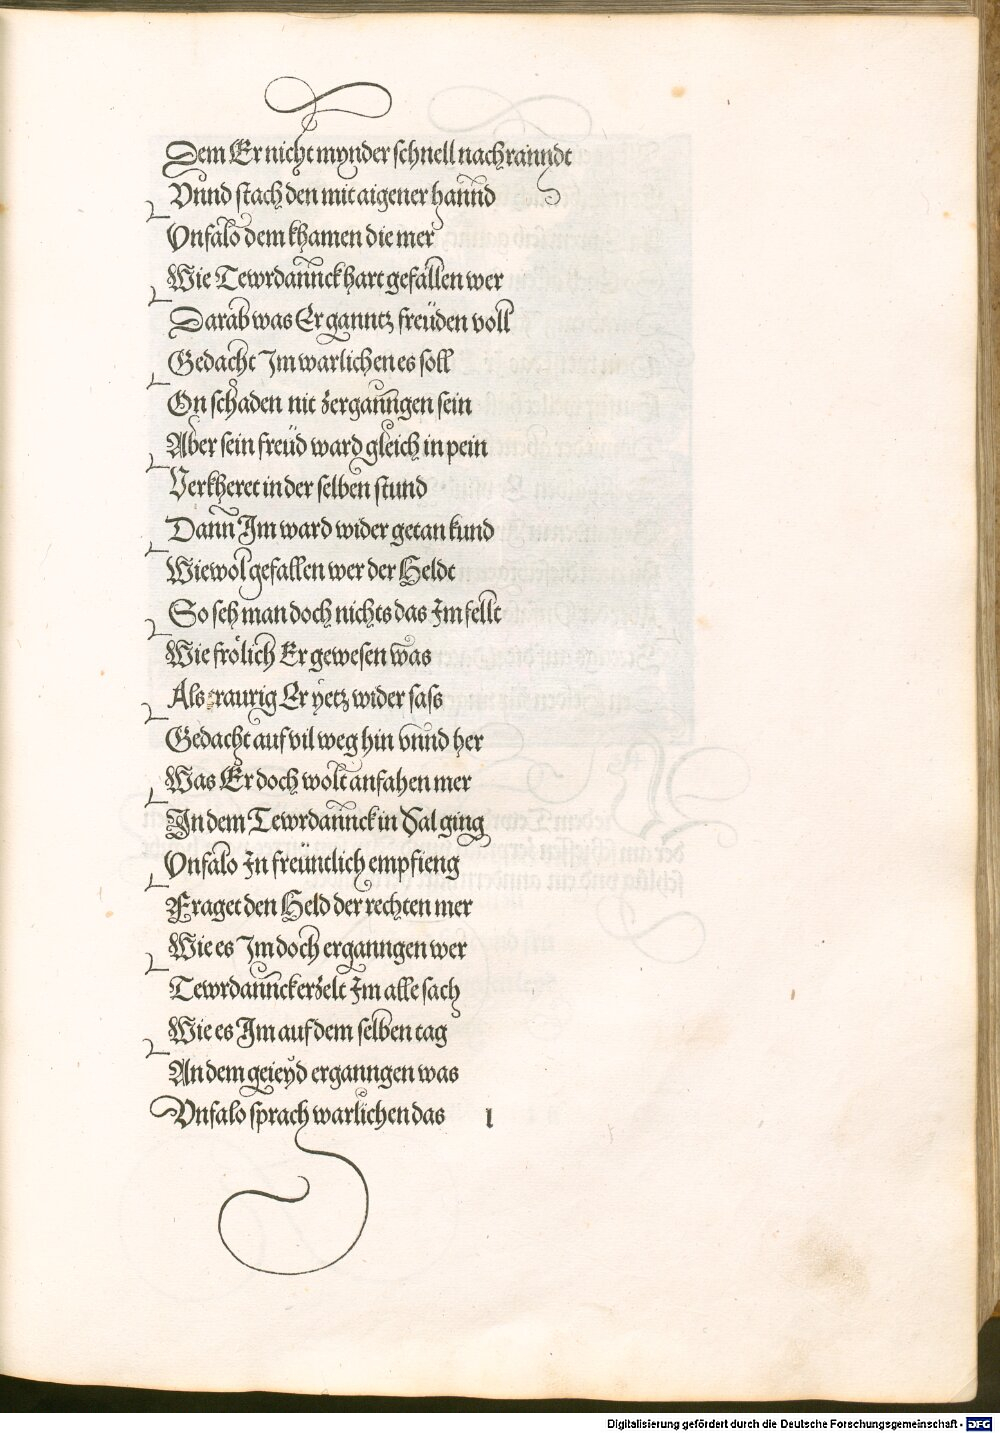 Dem Er nicht mynder schnell nach ranndt
Vnnd stach den mit aigener hannd
Vnfalo dem khamen die mer
Wie Tewrdannck hart gefallen wer
Darab was Er ganntz freüden voll
Gedacht Im warlichen es soll
On schaden nit zerganngen sein
Aber sein freüd ward gleich in pein
Verkheret in der selben stund
Dann Im ward wider getan kund
Wiewol gefallen wer der Heldt
So seh man doch nichts das Im fellt
Wie frölich Er gewesen was
Als traurig Er yetz wider sass
Gedacht auf vil weg hin vnnd her
Was Er doch wolt anfahen mer
In dem Tewrdannck in Sal ging
Vnfalo In freüntlich empfieng
Fraget den Held der rechten mer
Wie es Im doch erganngen wer
Tewrdannck erzelt Im alle sach
Wie es Im auf dem selben tag
An dem geieyd erganngen was
Vnfalo sprach warlichen das l
Digitalisierung gefördert durch die Deutsche Forschungsgemeinschaft - DFG